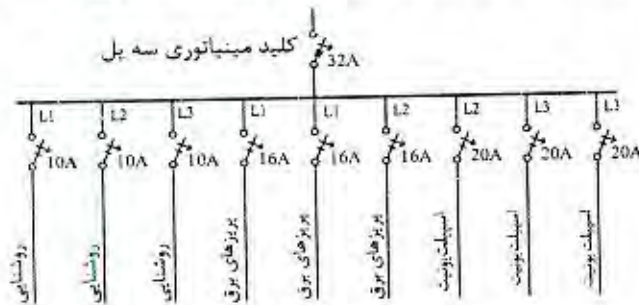 کلید مینیاتوری سه پل
32A
L1 L2 L3 L1 L1 L2 L2 L3 L3
10A 10A 10A 16A 16A 16A 20A 20A 20A
روشنایی روشنایی روشنایی پریزهای برق پریزهای برق پریزهای برق اسپیلت یونیت اسپیلت یونیت اسپیلت یونیت